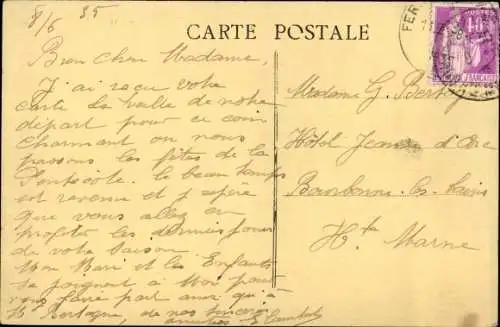 8/6 35
CARTE POSTALE
Bien chère Madame,
J'ai reçu votre
carte la veille de notre
départ pour ce coin
charmant ou nous
passons les fêtes de la
Pentecôte. le beau temps
est revenu et j'espère
que vous allez en
profiter les derniers jours
de votre saison
Mon Mari et les Enfants
se joignent à Moi pour
vous faire part ainsi qu'à
de nos sincères
amitiés
Madame G.
Hôtel Jeanne d'Arc
Bourbonne les bains
Hte Marne
FER
40
POSTES
FRANÇAISE